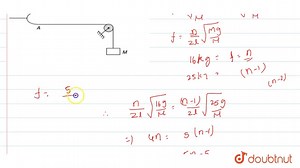 A
M
f = n/2l √(Mg/μ)
16kg = f = n
25kg = (n-1)
(n-1)
f = 5
∴ n/2l √(16g/μ) = (n-1)/2l √(25g/μ)
⇒ 4n = 5(n-1)
doubtnut